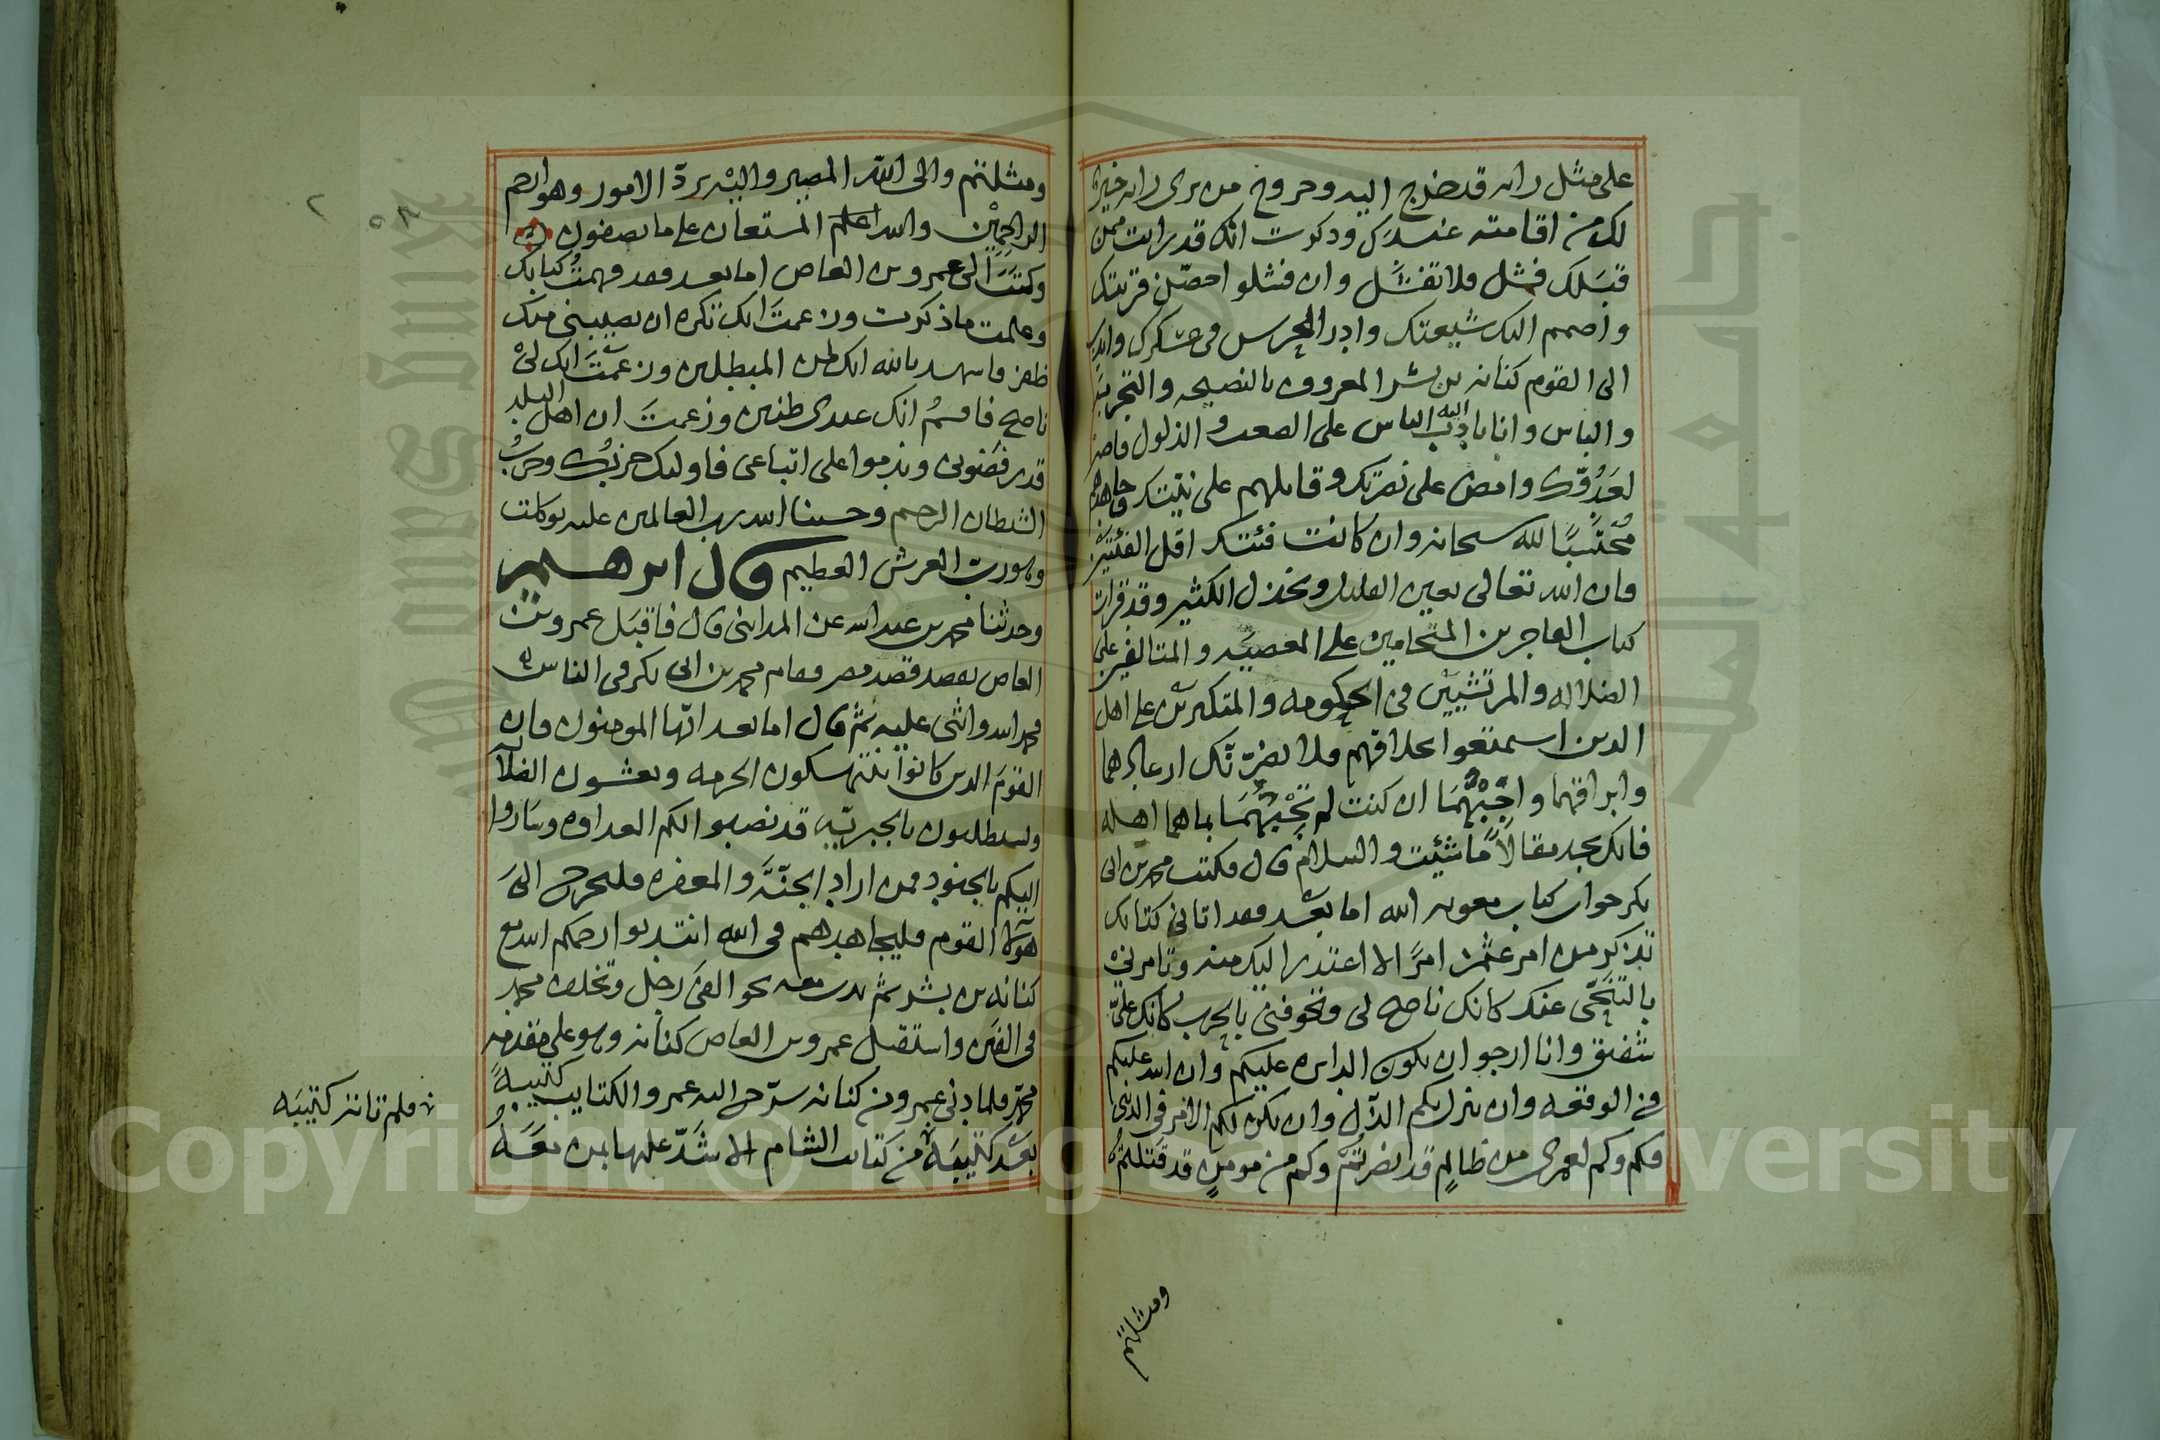 على مثل رايه قد خرج اليه وخروج من يرى رايه خير
لك من اقامته عندك وذكرت انك قد رايت ممن
قبلك فشل فلا تفشل وان فشلوا احصن قريتك
واضمم اليك شيعتك واذر الحرس في عسكرك واندب
الى القوم كنانه بن بشر المعروف بالنصيحه والتجربه
والباس وانا نادب اليك الناس على الصعب والذلول فاصبر
لعدوك وامض على نصرتك وقاتلهم على نيتك وجاهدهم
محتسبا لله سبحانه وان كانت فئتك اقل الفئتين
فان الله تعالى يعين القليل ويخذل الكثير وقد قرات
كتاب الفاجرين المتحابين على المعصيه والمتالفين على
الضلاله والمرتشيين في الحكومه والمتكبرين على اهل
الدين استمتعوا بخلاقهم فلا يضرنك ارعادهما
وابراقهما واجبهما ان كنت لم تجبهما بما هما اهله
فانك تجد مقالا ما شئت والسلام قال فكتب محمد بن ابى
بكر جواب كتاب معويه اليه اما بعد فقد اتاني كتابك
تذكر من امر عثمن امرا لا اعتذر اليك منه وتامرني
بالتنحى عنك كانك ناصح لى وتخوفنى بالحرب كانك على
شفيق وانا ارجو ان يكون الدايره عليكم وان الله عليكم
في الوقعه وان ينزل بكم الذل وان يكن لكم الامر في الدنيا
فكم وكم لعمرى من ظالم قد نصرتم وكم من مومن قد قتلتم
ومثلتم
ومثلتم والى الله المصير واليه يرد الامور وهو ارحم
الراحمين والله اعلم المستعان على ما تصفون
وكتب الى عمرو بن العاص اما بعد فقد فهمت كتابك
وعلمت ما ذكرت وزعمت انك تكره ان يصيبنى منك
ظفر فاشهد بالله انك لمن المبطلين وزعمت انك لى
ناصح فاقسم انك عندى ظنين وزعمت ان اهل البلد
قد رفضونى وندموا على اتباعى فاوليك حزبك وحزب
الشيطان الرجيم وحسبنا الله رب العالمين عليه توكلت
وهو رب العرش العظيم قال ابرهيم
وحدثنا محمد بن عبد الله عن المداينى قال فاقبل عمرو بن
العاص يقصد قصد مصر فقام محمد بن ابى بكر فى الناس
فحمد الله واثنى عليه ثم قال اما بعد ايها المومنون فان
القوم الذين كانوا ينتهكون الحرمه ويغشون الضلا
ويستطيلون بالجبريه قد نصبوا لكم العداوه وساروا
اليكم بالجنود فمن اراد الجنة والمغفره فليخرج الى
هولا القوم فليجاهدهم فى الله انتدبوا رحمكم الله مع
كنانه بن بشر ثم ندب معه نحو الفى رجل وتخلف محمد
فى الفين واستقبل عمرو بن العاص كنانه وهو على مقدمه
محمد فلما دنى عمرو من كنانه سرح اليه عمرو الكتايب كتيبة
بعد كتيبة من كتايب الشام الا شد عليها بمن معه
فلم تاته كتيبه